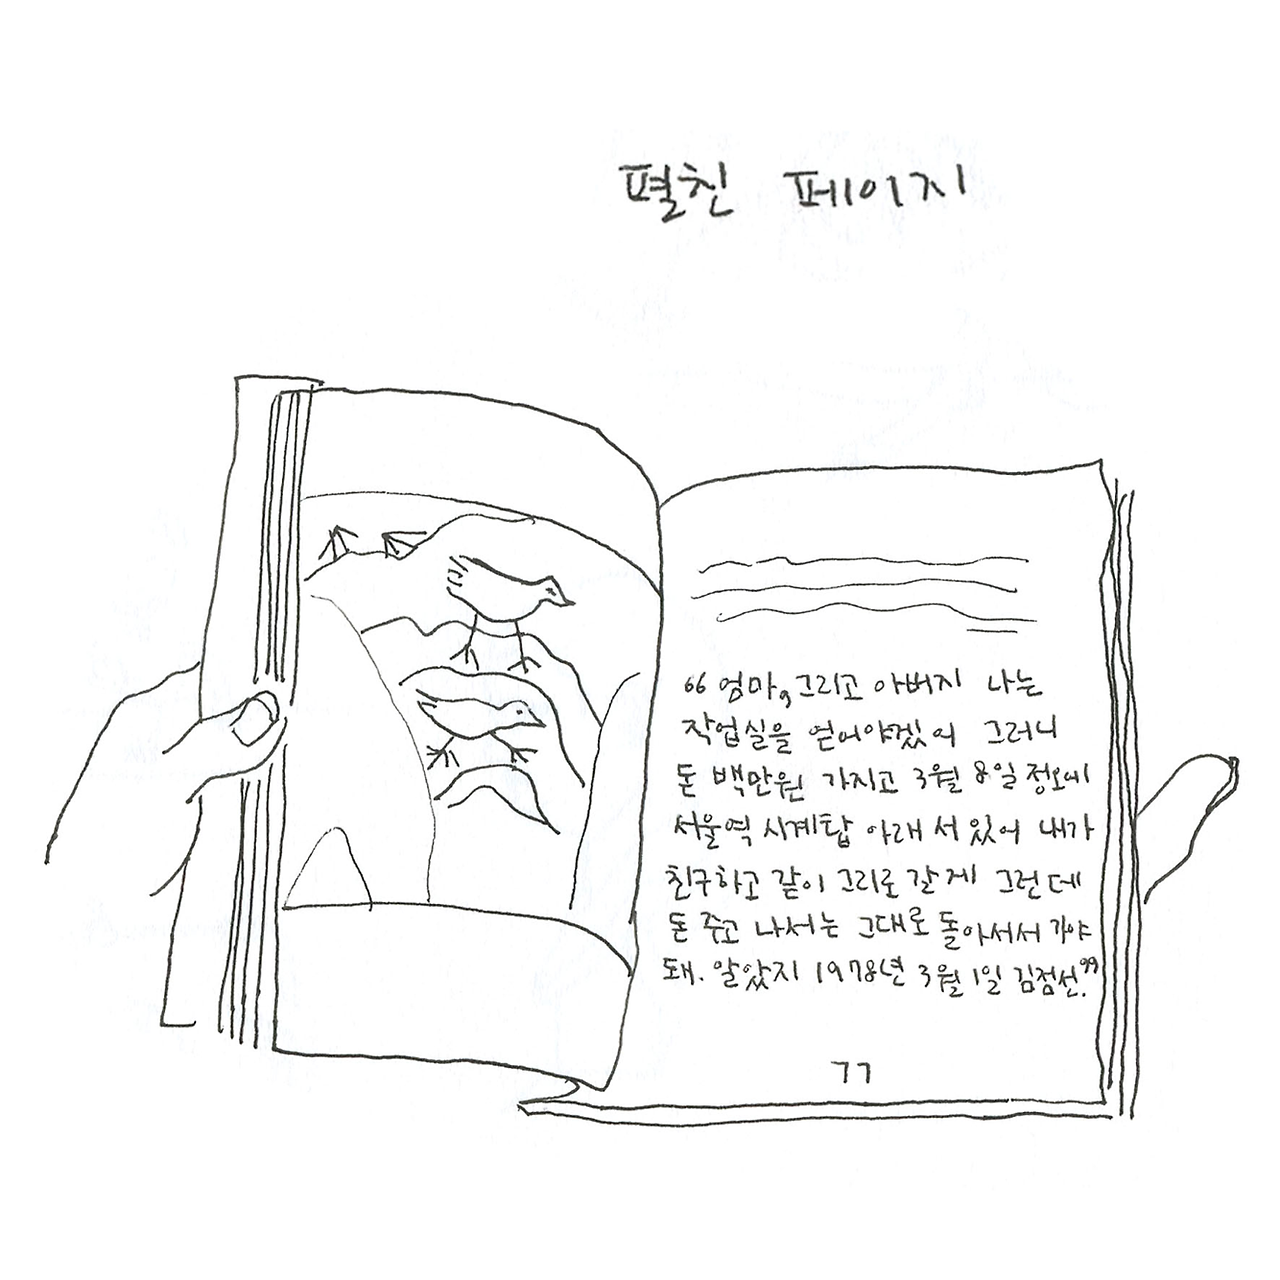 펼친 페이지
“엄마, 그리고 아버지 나는
작업실을 얻어야겠어 그러니
돈 백만원 가지고 3월 8일 정오에
서울역 시계탑 아래 서 있어 내가
친구하고 같이 그리로 갈게 그런데
돈 주고 나서는 그대로 돌아서서 가야
돼. 알았지 1978년 3월 1일 김점선.”
77